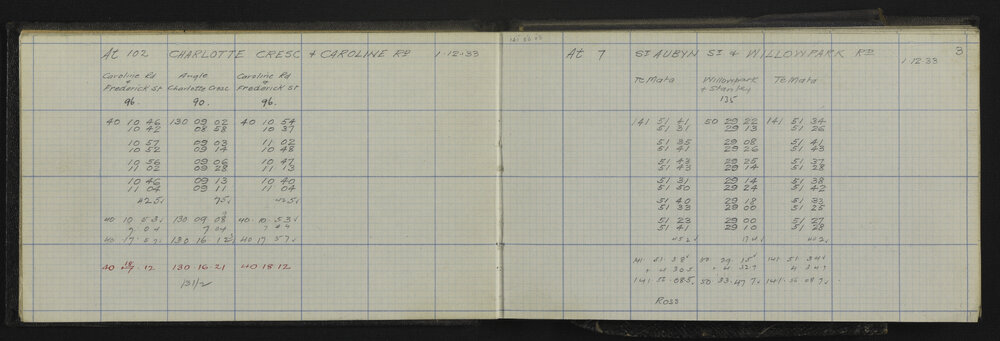 At 102 CHARLOTTE CRESC + CAROLINE RD 1.12.33
Caroline Rd Angle Caroline Rd
+ Frederick St Charlotte Cresc Frederick St
96. 90. 96.
40 10 46 130 09 02 40 10 54
10 42 08 58 10 37
10 57 09 03 11 02
10 52 09 14 10 48
10 56 09 06 10 47
11 02 09 28 11 13
10 46 09 13 10 40
11 04 09 11 11 04
425 75 425
40 10 53 130 09 08 40 10 53
7 04 7 04
40 17 57 130 16 12 40 17 57
40 18 12 130 16 21 40 18 12
At 7 ST AUBYN ST + WILLOWPARK RD 3
1.12.33
Te Mata Willowpark Te Mata
+ Stanley
135
141 51 41 50 29 22 141 51 34
51 31 29 13 51 26
51 35 29 08 51 41
51 41 29 26 51 43
51 43 29 25 51 37
51 43 29 14 51 28
51 31 29 14 51 38
51 50 29 24 51 42
51 40 29 18 51 33
51 33 29 00 51 25
51 23 29 00 51 27
51 41 29 10 51 28
452 174 402
141 51 38 50 29 15 141 51 34
+ 4 305 + 4 327 4 347
141 56 08.5 50 33 47.7 141 56 08.7
Ross